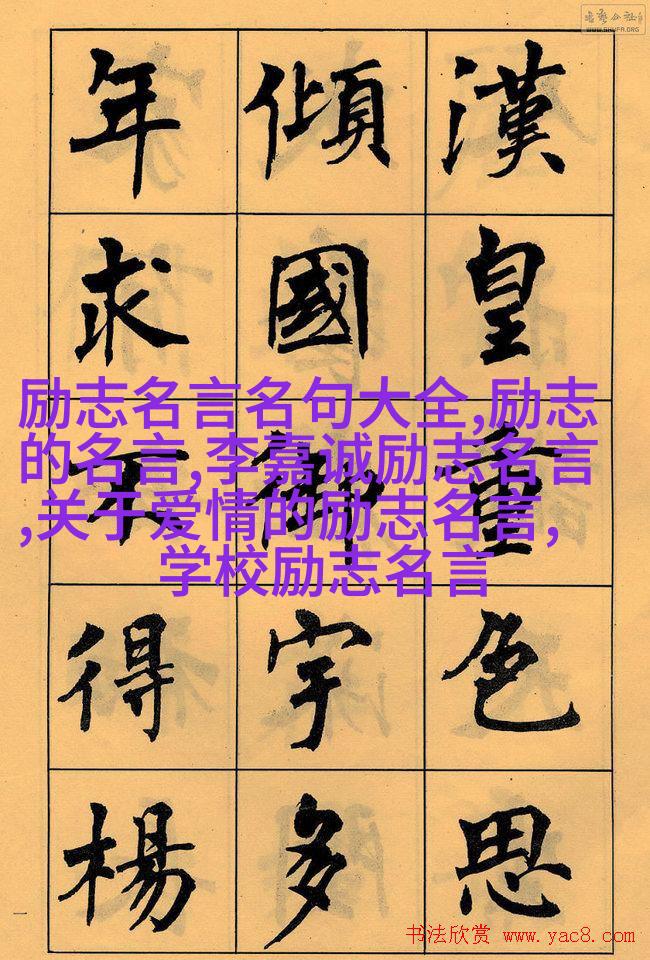 漢皇重色思
傾國御宇多
年求不得楊
励志名言名句大全,励志
的名言,李嘉诚励志名言
,关于爱情的励志名言,
学校励志名言
一
WWW.SHUFA.ORG
书法欣赏 www.yac8.com